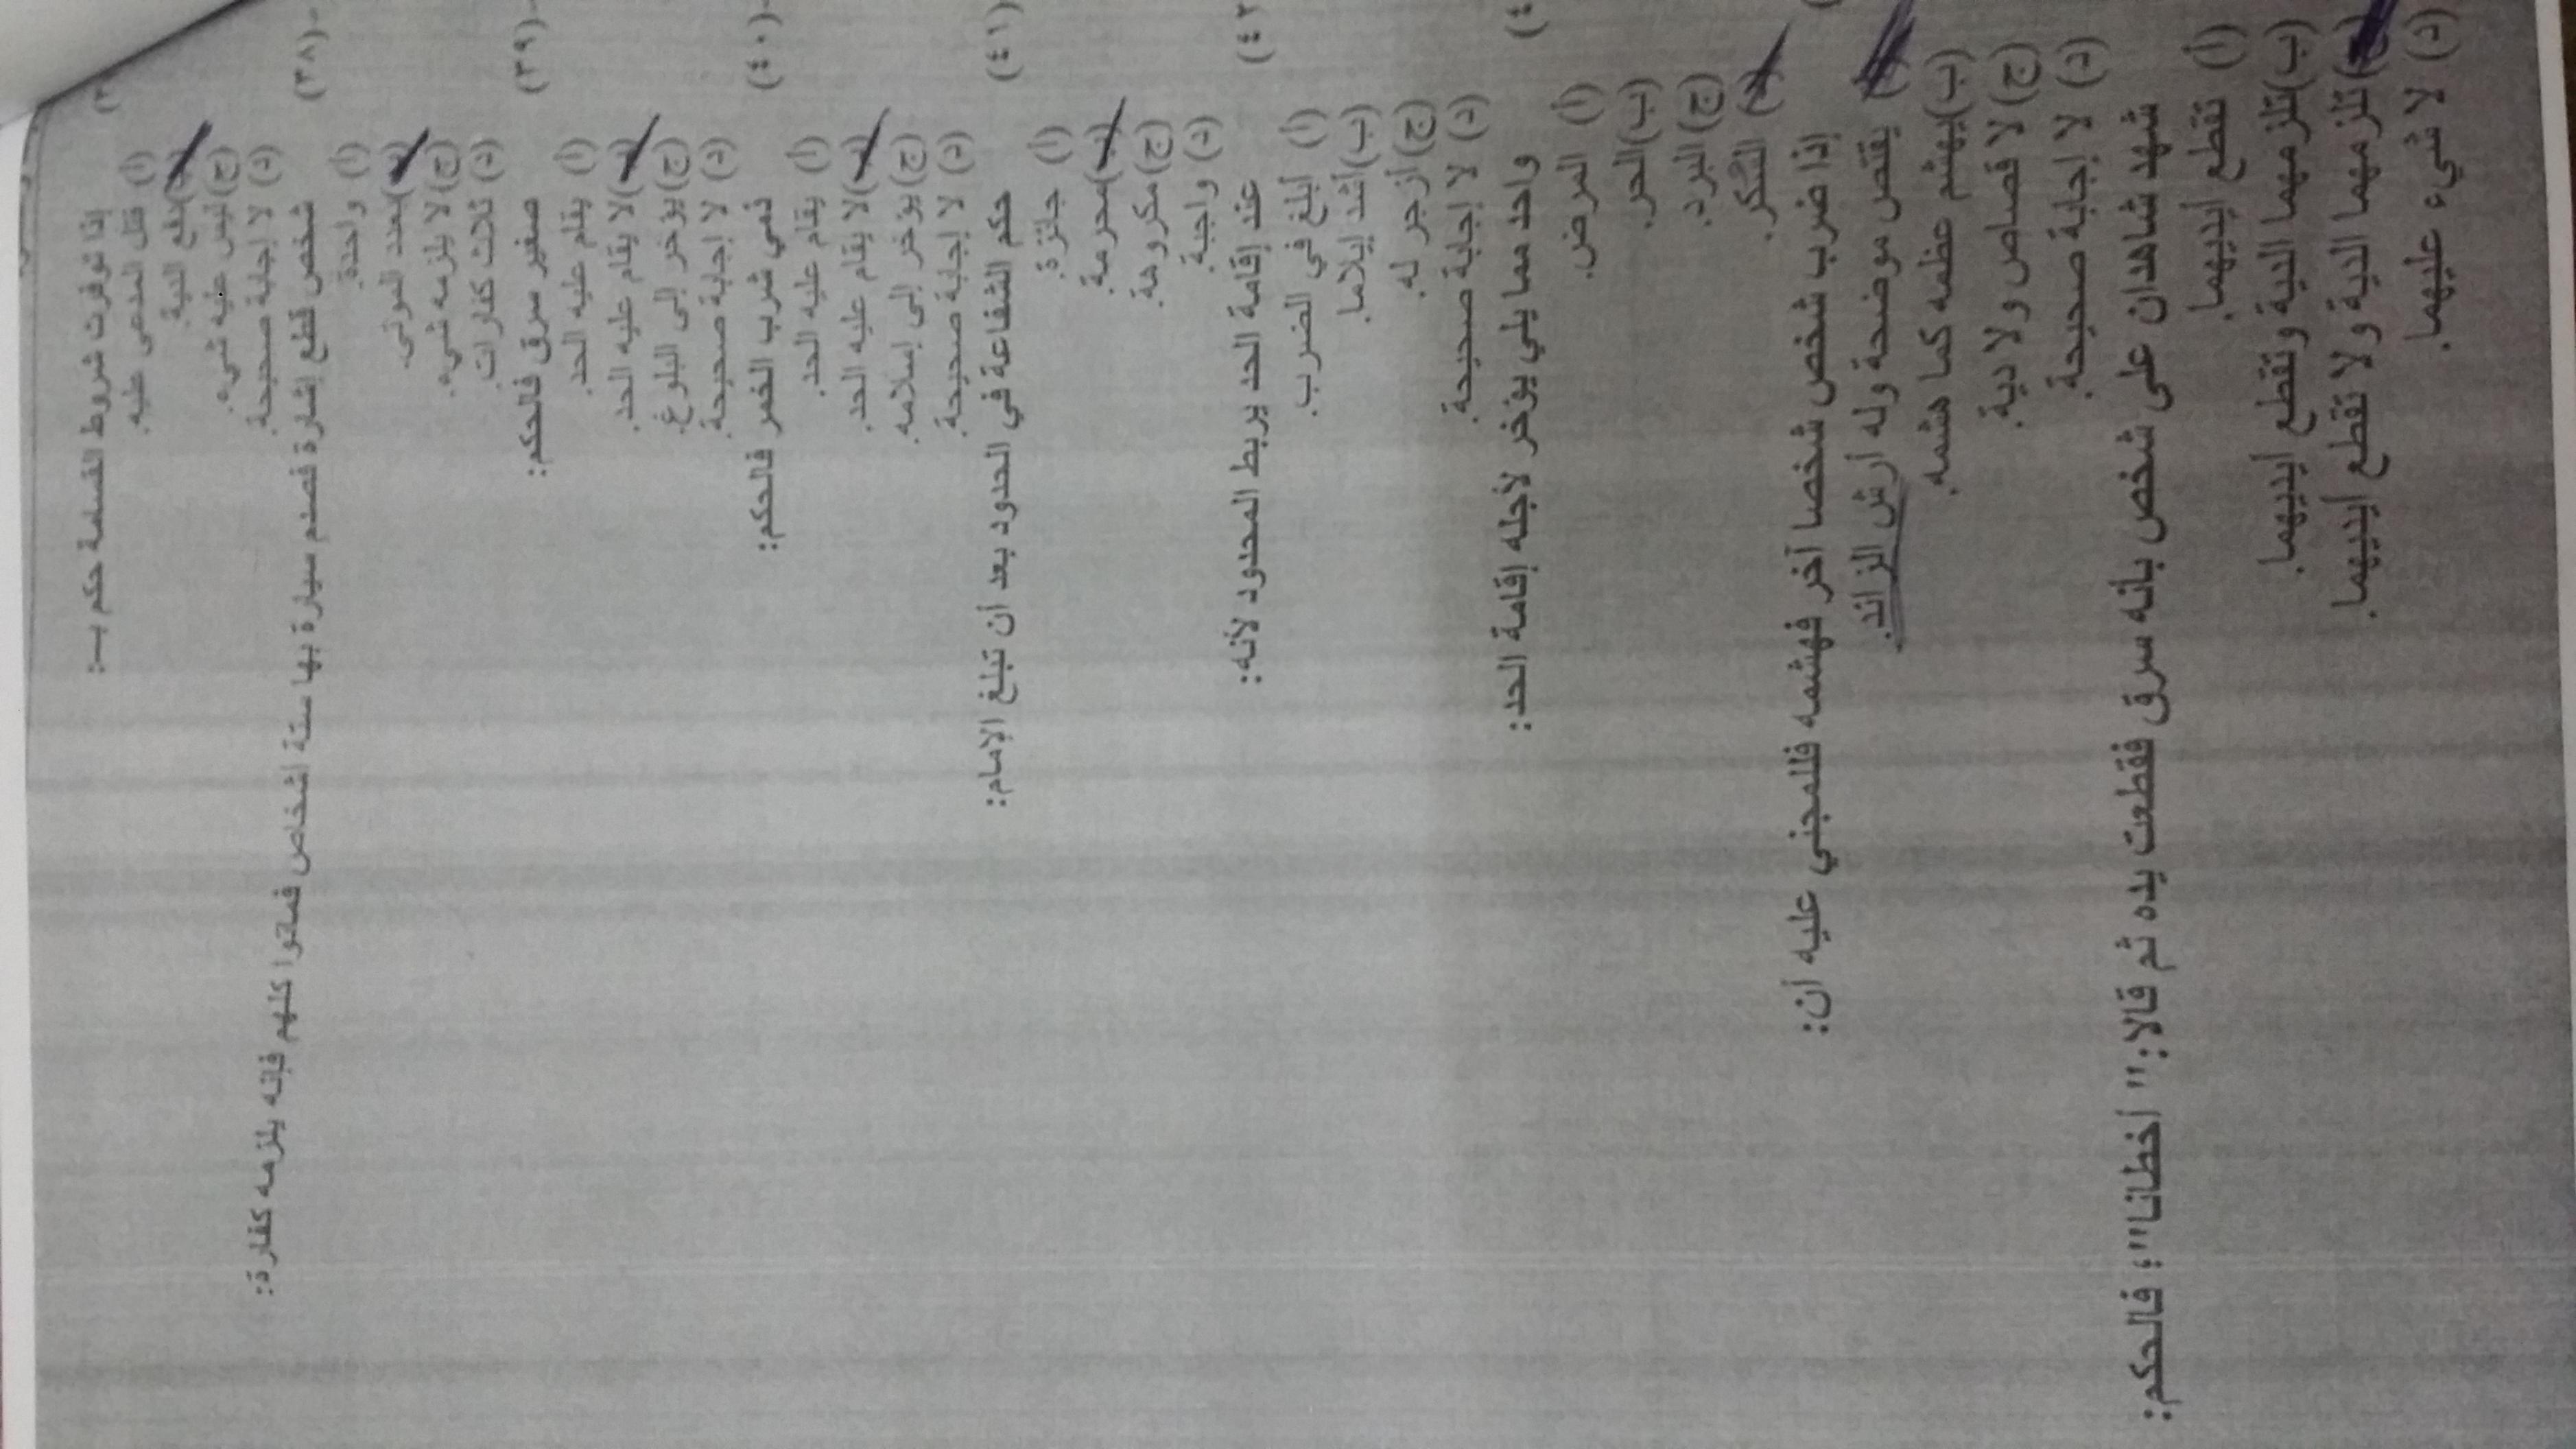 إذا توفرت شروط القسامة حكم بـ:
(أ) قتل المدعى عليه.
دفع الدية.
(ج) ليس عليه شيء.
(د) لا إجابة صحيحة.
(٣٨)- شخص قطع إشارة فصدم سيارة بها ستة أشخاص فماتوا كلهم فإنه يلزمه كفارة:
(أ) واحدة.
بعدد الموتى.
(ج) لا يلزمه شيء.
(د) ثلاث كفارات.
(٣٩)- صغير سرق فالحكم:
(أ) يقام عليه الحد.
(ب) لا يقام عليه الحد.
(ج) يؤخر إلى البلوغ.
(د) لا إجابة صحيحة.
(٤٠)- ذمي شرب الخمر فالحكم:
(أ) يقام عليه الحد.
(ب) لا يقام عليه الحد.
(ج) يؤخر إلى إسلامه.
(د) لا إجابة صحيحة.
(٤١) حكم الشفاعة في الحدود بعد أن تبلغ الإمام:
(أ) جائزة.
(ب) محرمة.
(ج) مكروهة.
(د) واجبة.
(٤٢ عند إقامة الحد يربط المحدود لأنه:
(أ) أبلغ في الضرب.
(ب) أشد إيلاما.
(ج) أزجر له.
(د) لا إجابة صحيحة.
(٤ واحد مما يلي يؤخر لأجله إقامة الحد:
(أ) المرض.
(ب) الحر.
(ج) البرد.
(د) السكر.
إذا ضرب شخص شخصا آخر فهشمه فللمجني عليه أن:
يقتص موضحة وله أرش الزائد.
(ب) يهشم عظمه كما هشمه.
(ج) لا قصاص ولا دية.
(د) لا إجابة صحيحة.
شهد شاهدان على شخص بأنه سرق فقطعت يده ثم قالا: " أخطانا"؛ فالحكم:
(أ) تقطع أيديهما.
(ب) تلزمهما الدية وتقطع أيديهما.
تلزمهما الدية ولا تقطع أيديهما.
(د) لا شيء عليهما.